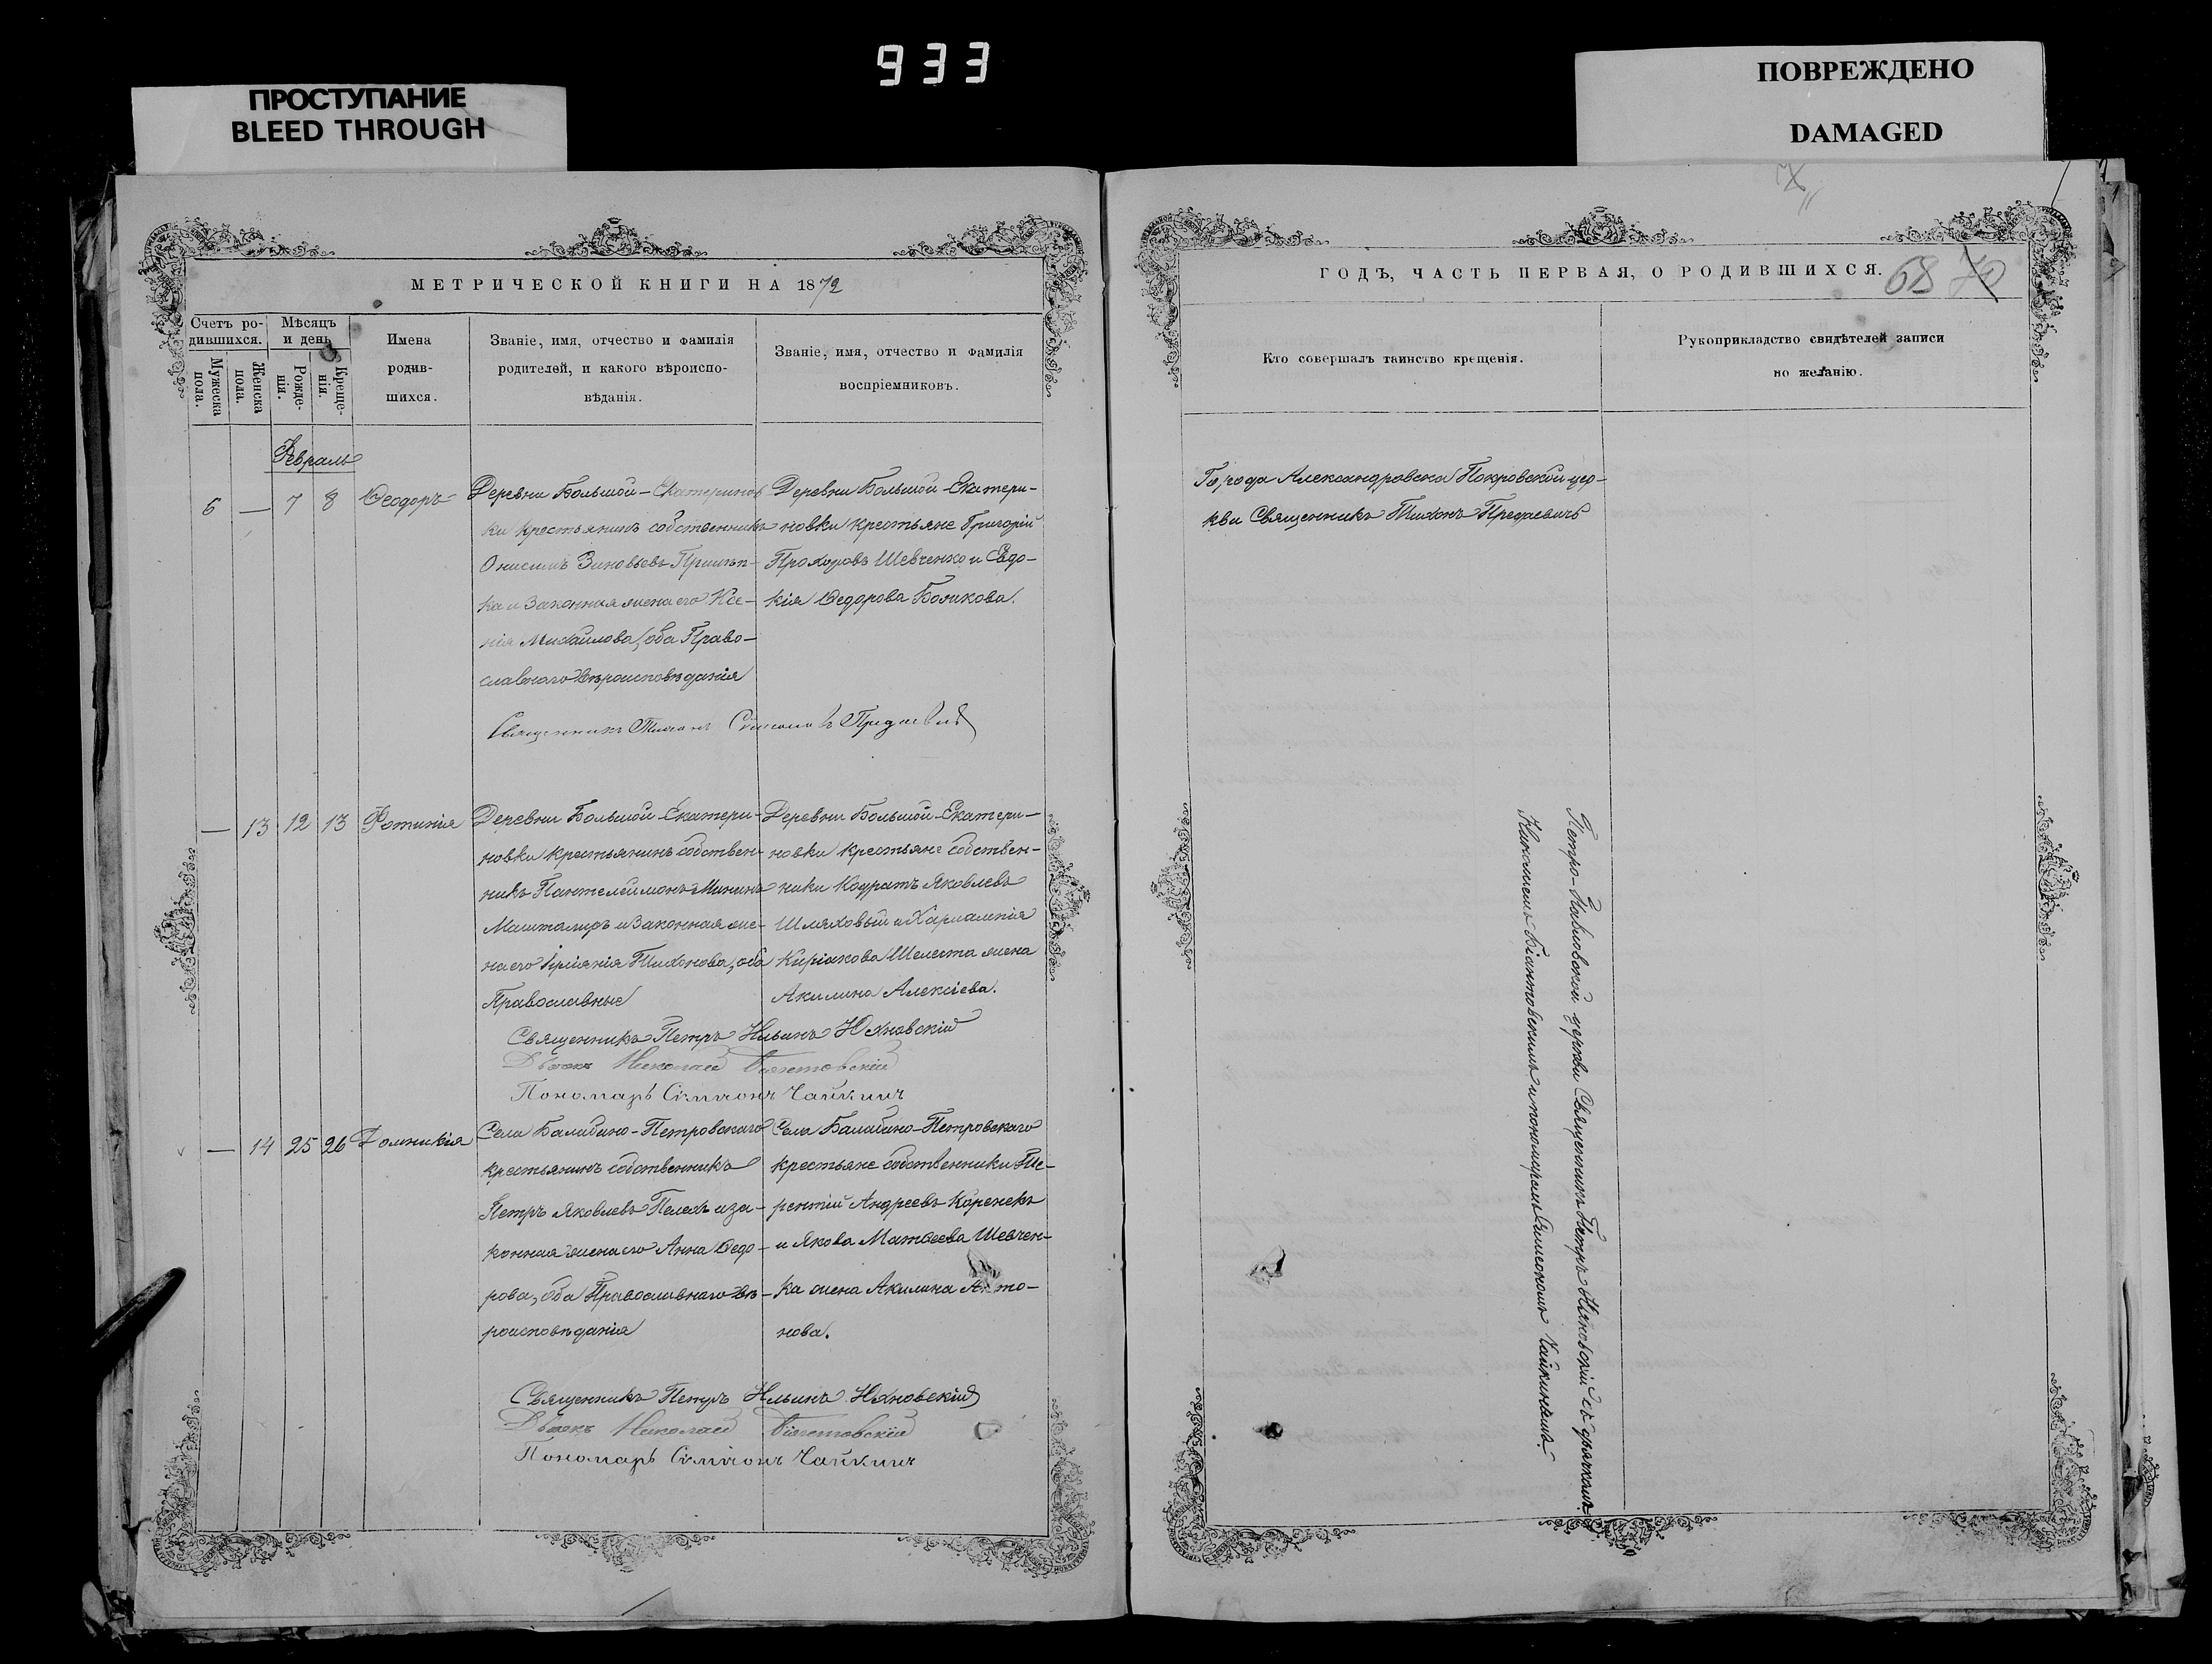 933
ПРОСТУПАНИЕ
BLEED THROUGH
ПОВРЕЖДЕНО
DAMAGED
МЕТРИЧЕСКОЙ КНИГИ НА 1872
Счетъ ро-
дившихся.
Мужеска пола.
Женска пола.
Мѣсяцъ
и день
Рожде-
нія.
Креще-
нія.
Имена
родив-
шихся.
Званіе, имя, отчество и фамилія
родителей, и какого вѣроиспо-
вѣданія.
Званіе, имя, отчество и фамилія
воспріемниковъ.
Февраль
6 — 7 8 Ѳеодоръ
Деревни Большой-Екатеринов
ки крестьянинъ собственникъ
Онисимъ Зиновьевъ
ка и законная жена его Ксе-
нія Михайлова, оба Право-
славнаго вѣроисповѣданія
Деревни Большой Екатери-
новки крестьяне Григорій
Прохоровъ Шевченко и Евдо-
кія Ѳедорова Божкова.
Священникъ Тихонъ
— 13 12 13 Фотинія
Деревни Большой Екатери-
новки крестьянинъ собствен-
никъ Пантелеймонъ Мининъ
Машталиръ и законная же-
на его Тихонова, оба
Православные
Деревни Большой-Екатери-
новки крестьяне собствен-
ники Кодратъ Яковлевъ
Шляховый и Харлампія
Киріакова Шелеста жена
Акилина Алексіева.
Священникъ Петръ Ильинъ
Дьячекъ Николай
Пономарь Симеонъ Чайкинъ
— 14 25 26 Домникія
Села Балабино-Петровскаго
крестьянинъ собственникъ
Петръ Яковлевъ Пелехъ и за-
конная жена его Анна Ѳедо-
рова, оба Православнаго вѣ-
роисповѣданія
Села Балабино-Петровскаго
крестьяне собственники Те-
рентій Андреевъ Коренекъ
и Якова Матѳеева Шевчен-
ка жена Акилина Анто-
нова.
Священникъ Петръ Ильинъ
Дьячекъ Николай
Пономарь Симеонъ Чайкинъ
ГОДЪ, ЧАСТЬ ПЕРВАЯ, О РОДИВШИХСЯ.
68 70
Кто совершалъ таинство крещенія.
Рукоприкладство свидѣтелей записи
по желанію.
Города Александровска Покровской цер-
кви Священникъ Тихонъ
Петро-Павловской церкви Священникъ Петръ съ дьячкомъ
Николаемъ и пономаремъ Симеономъ Чайкинымъ.